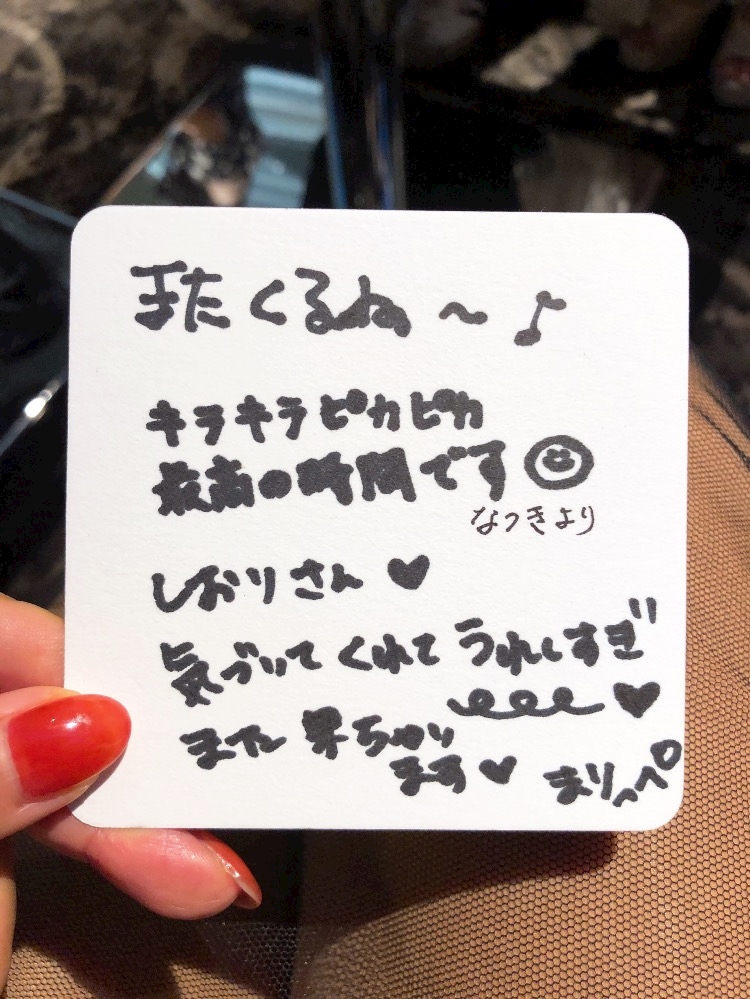 またくるね〜♪
キラキラピカピカ
最高の時間です
なつきより
しおりさん♥
気づいてくれてうれしすぎ
♥
また来ちゃい
ます♥ まりっぺ